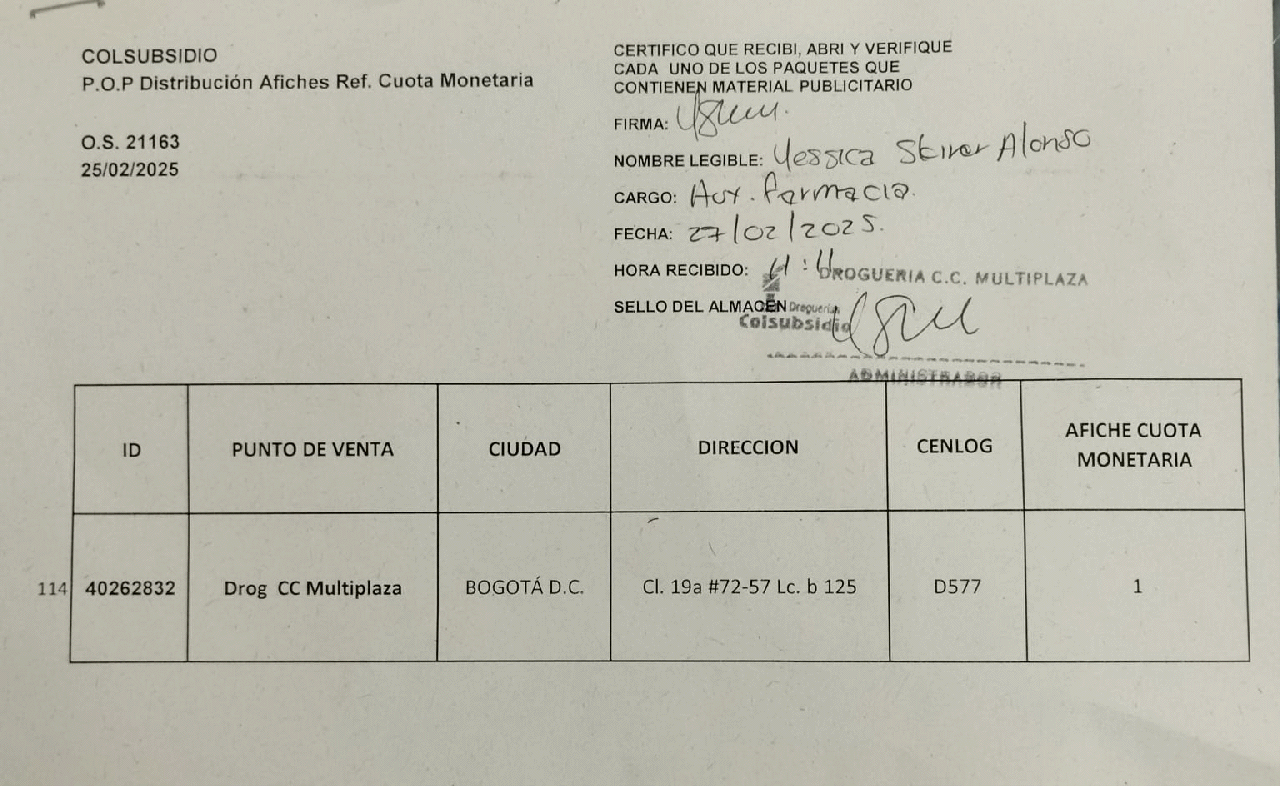 COLSUBSIDIO
P.O.P Distribución Afiches Ref. Cuota Monetaria
O.S. 21163
25/02/2025
CERTIFICO QUE RECIBI, ABRI Y VERIFIQUE
CADA UNO DE LOS PAQUETES QUE
CONTIENEN MATERIAL PUBLICITARIO
FIRMA:
NOMBRE LEGIBLE: Yessica Alonso
CARGO: Aux. Farmacia.
FECHA: 27/02/2025.
HORA RECIBIDO:
DROGUERIA C.C. MULTIPLAZA
SELLO DEL ALMACÉN
Droguerías
Colsubsidio
ADMINISTRADOR
ID PUNTO DE VENTA CIUDAD DIRECCION CENLOG AFICHE CUOTA
MONETARIA
114 40262832 Drog CC Multiplaza BOGOTÁ D.C. Cl. 19a #72-57 Lc. b 125 D577 1